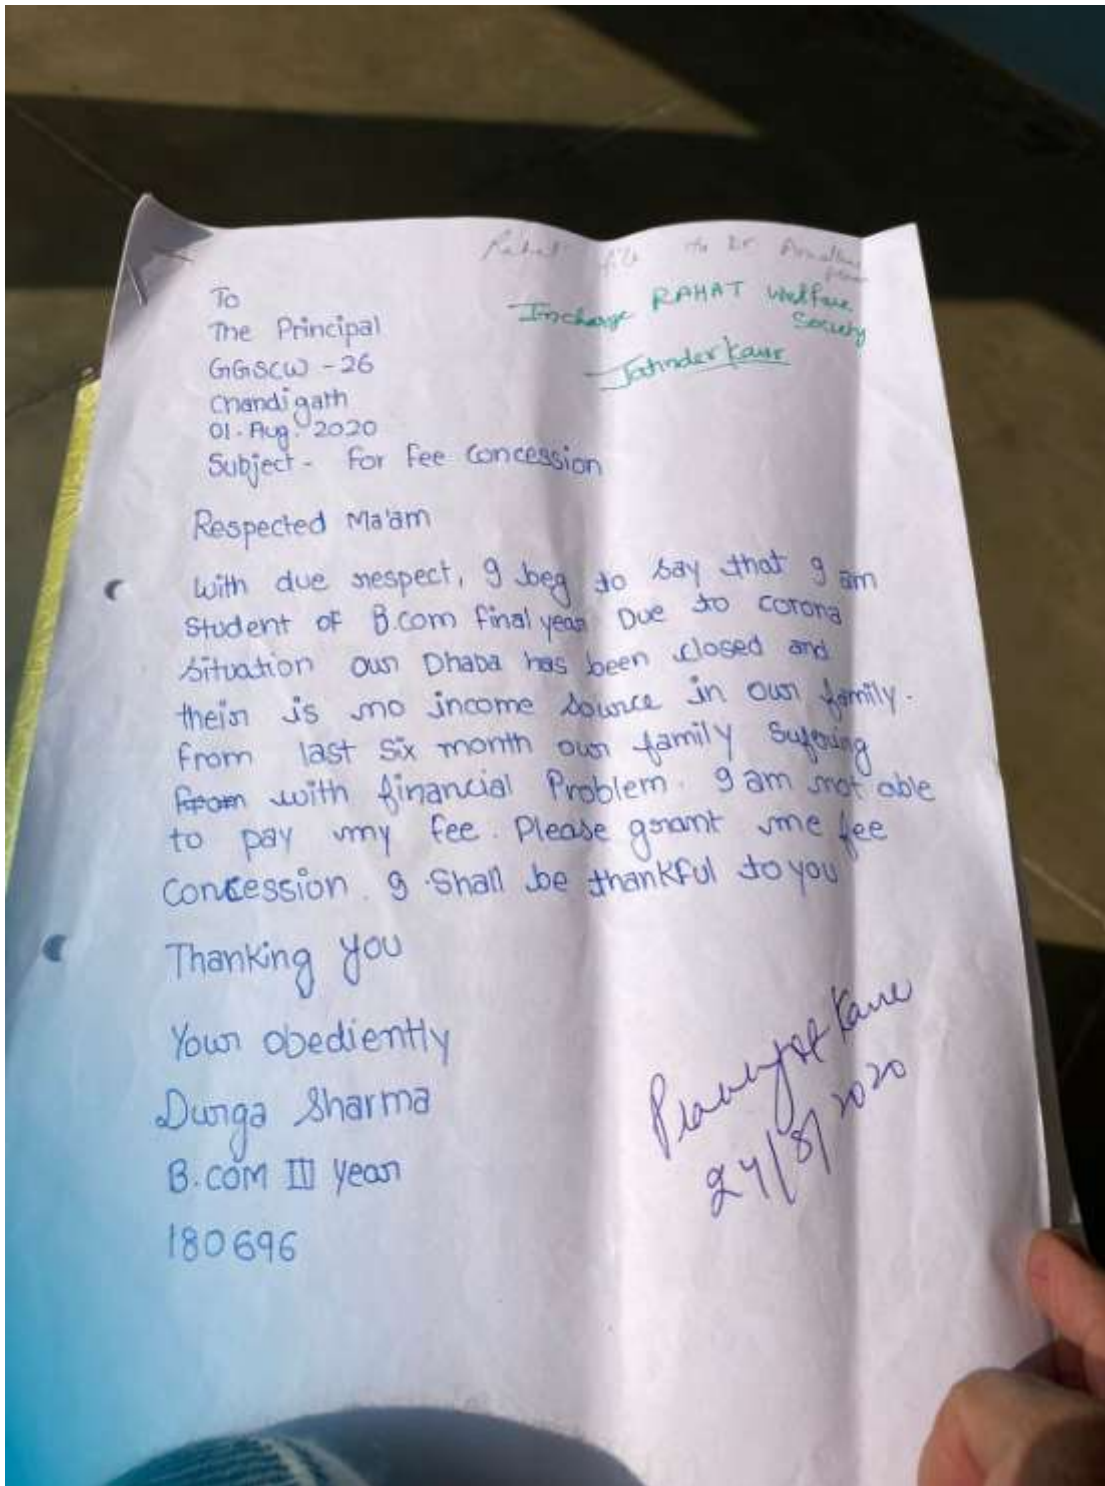 Rahat file to Dr
Incharge RAHAT Welfare
Society
Jatinder Kaur
To
The Principal
GGSCW - 26
Chandigath
01. Aug. 2020
Subject - For Fee Concession
Respected Ma'am
With due respect, I beg to say that I am
Student of B.Com final year Due to corona
situation our Dhaba has been closed and
their is no income source in our family.
From last six month our family Sufering
From with financial Problem. I am not able
to pay my fee. Please grant me fee
Concession. I Shall be thankful to you
Thanking you
Your obediently
Durga Sharma
B.com III year
180696
Kaur
24/8/2020